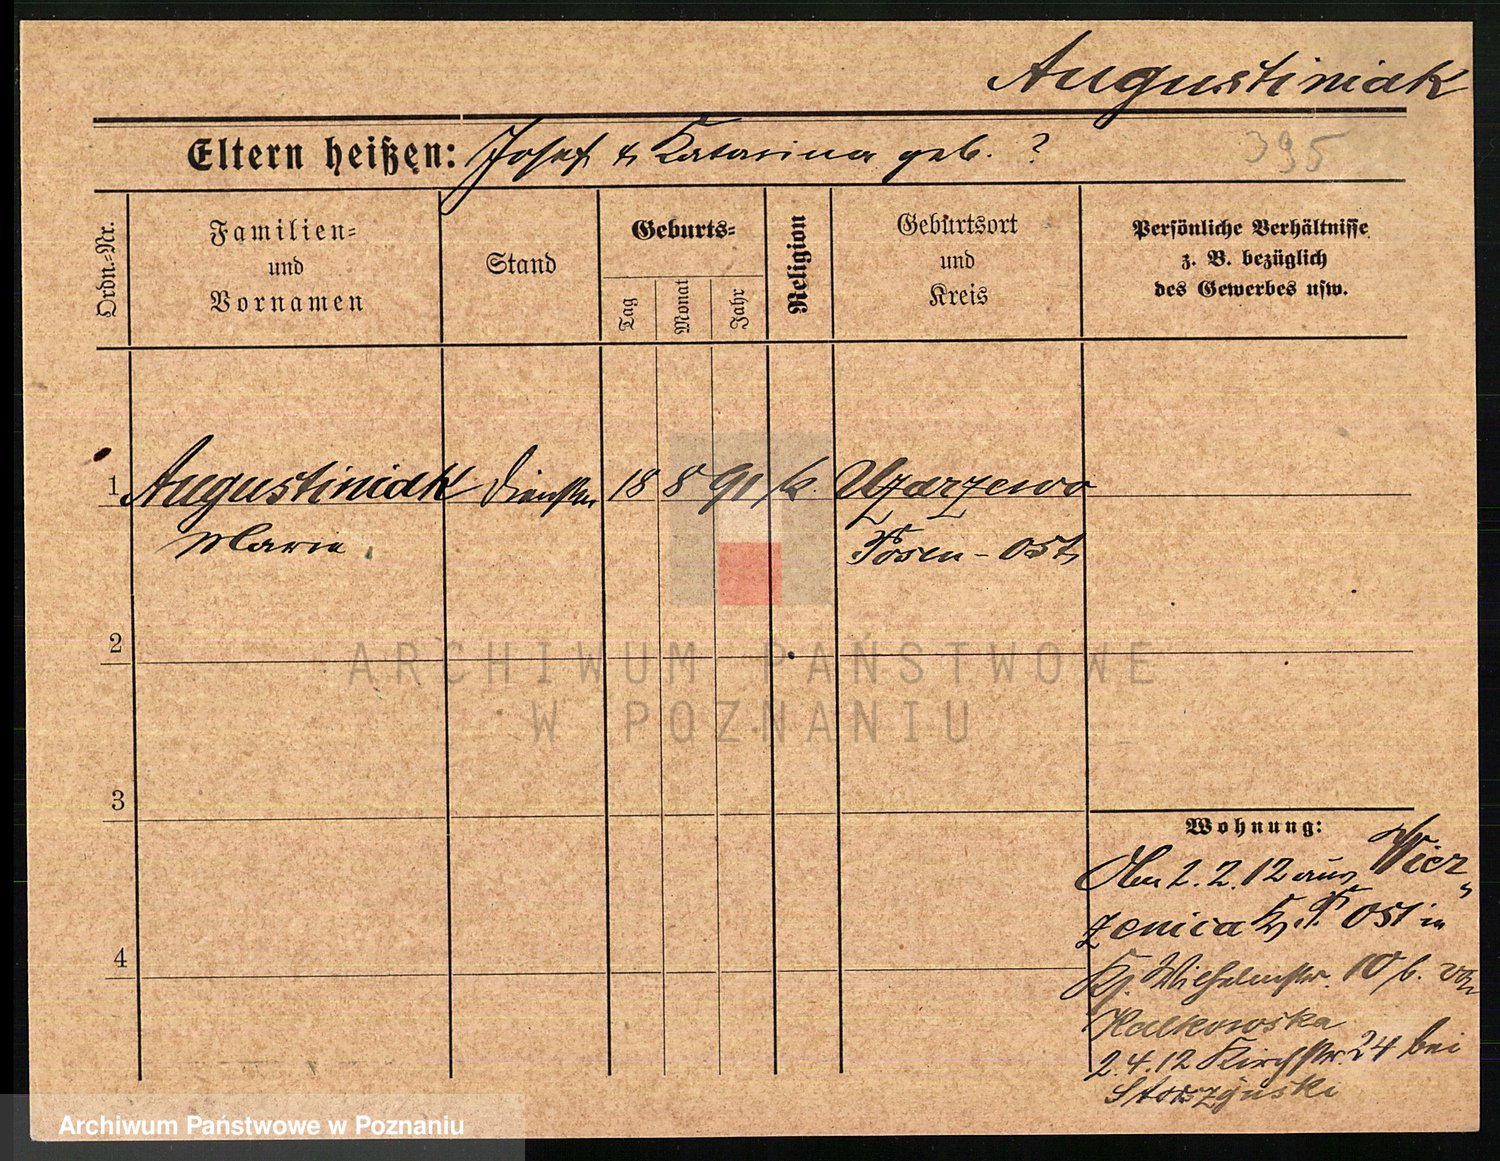 Augustiniak
Eltern heißen: Josef & Katarina geb. ?
395
Ordn.-Nr.
Familien-
und
Vornamen
Stand
Geburts-
Tag
Monat
Jahr
Religion
Geburtsort
und
Kreis
Persönliche Verhältnisse
z. B. bezüglich
des Gewerbes usw.
1 Augustiniak 18 8 91 k. Uzarzewo
Maria Posen-Ost
2
ARCHIWUM PAŃSTWOWE
W POZNANIU
3
Wohnung:
2.2.12 aus Wier-
zenica Kr. P. Ost in
Wilhelmstr. 10 b.
4
2.4.12 Kirchstr. 24 bei
Archiwum Państwowe w Poznaniu